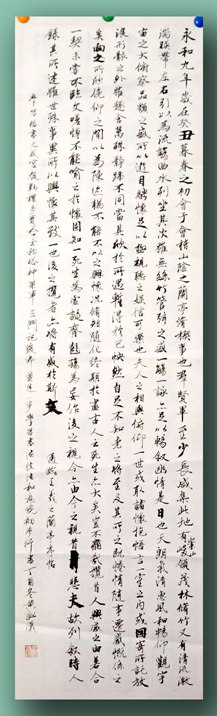 永和九年歲在癸丑暮春之初會于會稽山陰之蘭亭脩禊事也群賢畢至少長咸集此地有崇山峻領茂林脩竹又有清流激
湍暎帶左右引以為流觴曲水列坐其次雖無絲竹管弦之盛一觴一詠亦足以暢叙幽情是日也天朗氣清惠風和暢仰觀宇
宙之大俯察品類之盛所以遊目騁懷足以極視聽之娛信可樂也夫人之相與俯仰一世或取諸懷抱悟言一室之内或因寄所託放
浪形骸之外雖趣舍萬殊靜躁不同當其欣於所遇蹔得於己怏然自足不知老之將至及其所之既惓情隨事遷感慨係之
矣向之所欣俛仰之間以為陳迹猶不能不以之興懷況脩短隨化終期於盡古人云死生亦大矣豈不痛哉每攬昔人興感之由若合
一契未嘗不臨文嗟悼不能喻之於懷固知一死生為虛誕齊彭殤為妄作後之視今亦由今之視昔悲夫故列叙時人
錄其所述雖世殊事異所以興懷其致一也後之攬者亦將有感於斯文 臨王羲之蘭亭序帖